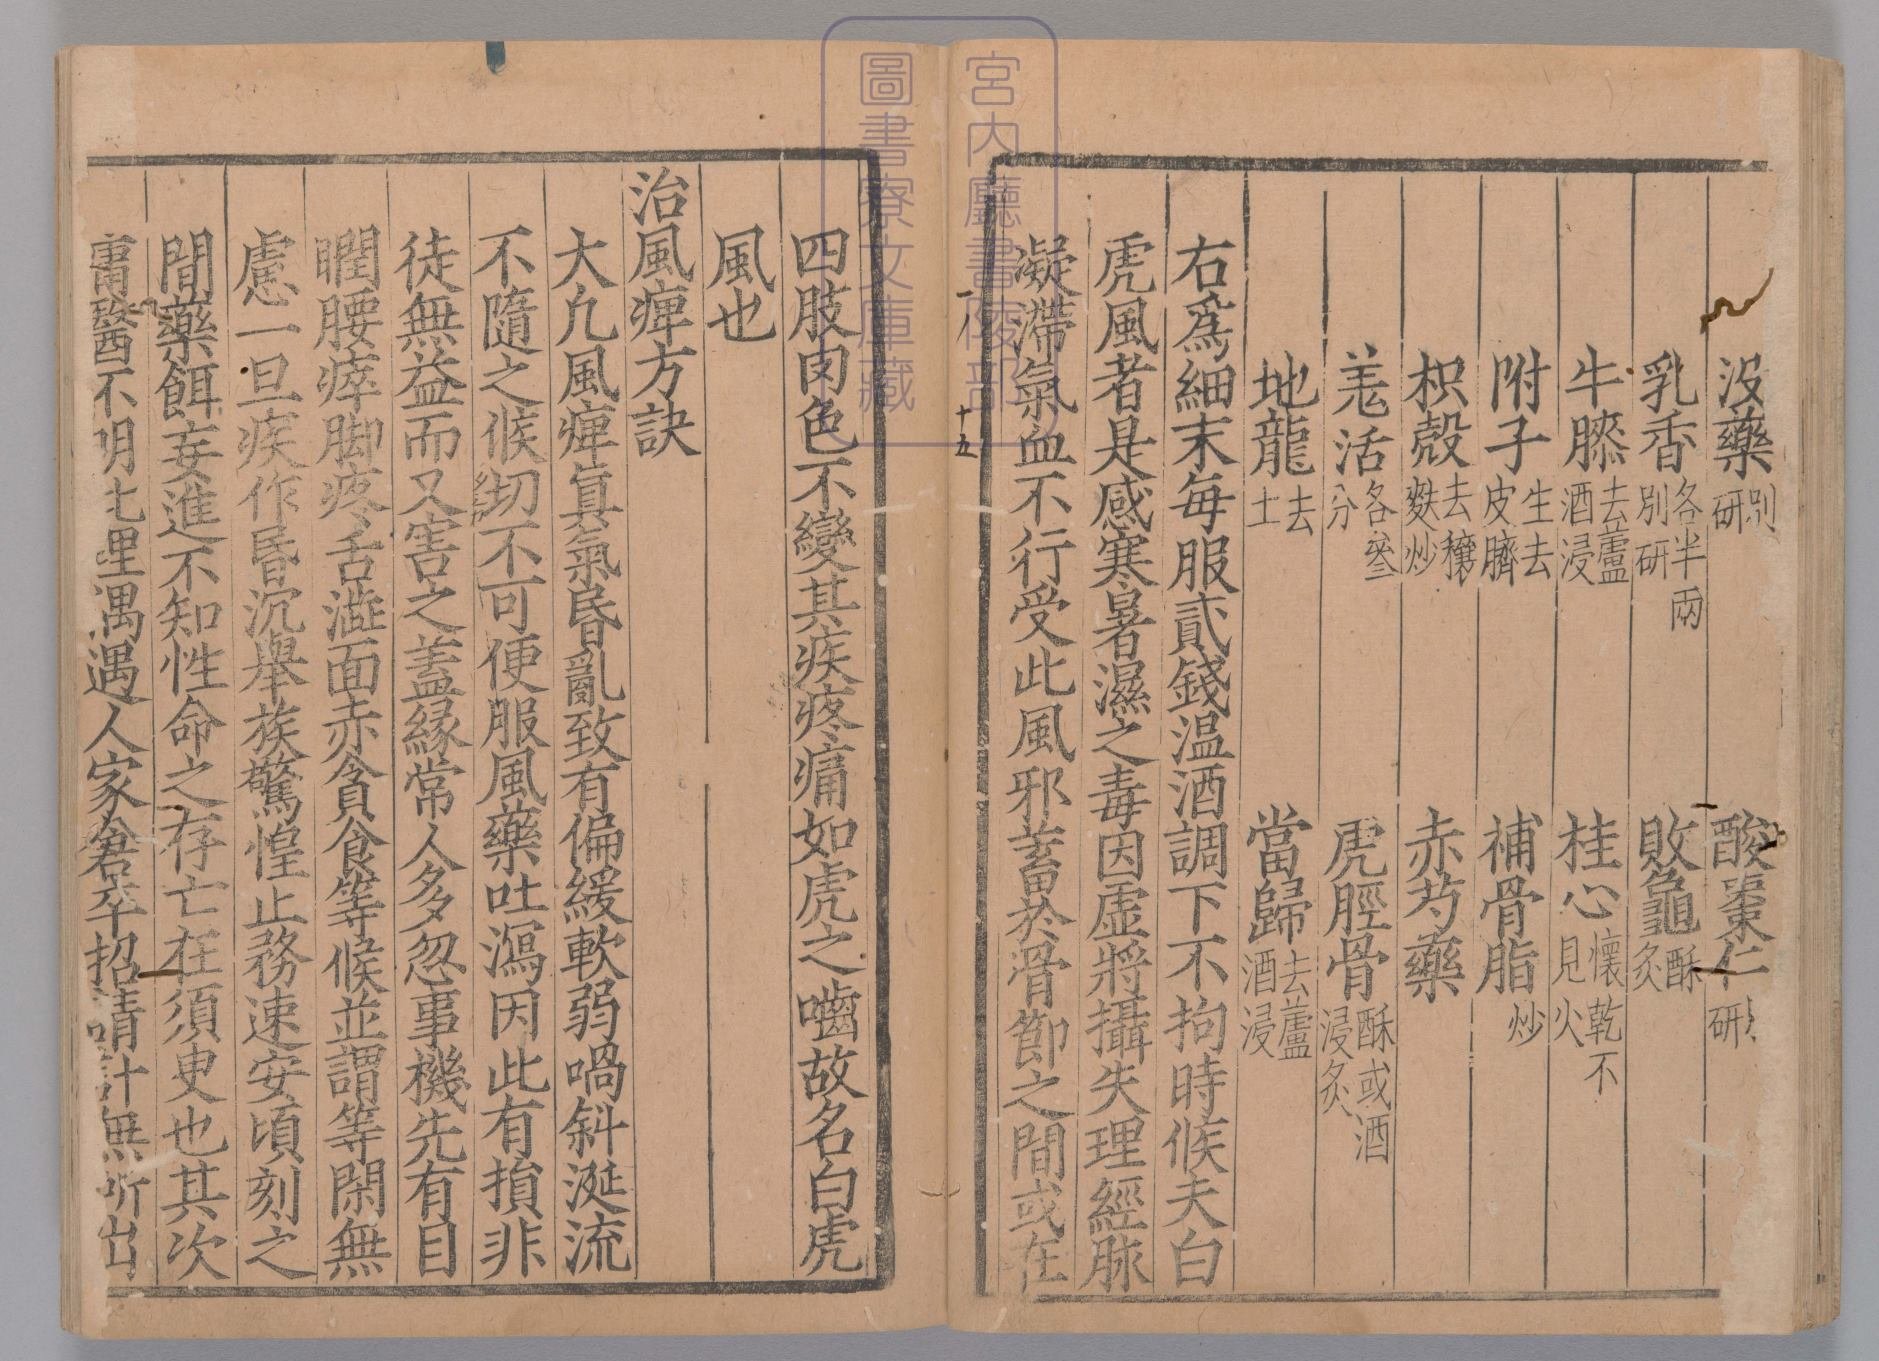 沒藥別研　酸棗仁研
乳香各半兩別研　敗龜酥炙
牛膝去蘆酒浸　桂心懷乾不見火
附子生去皮臍　補骨脂炒
枳殼去穰麩炒　赤芍藥
羌活各叄分　虎脛骨酥或酒浸炙
地龍去土　當歸去蘆酒浸
右爲細末每服貳錢温酒調下不拘時候夫白
虎風者是感寒暑濕之毒因虛將攝失理經脉
凝滯氣血不行受此風邪蓄於骨節之間或在
十五
四肢肉色不變其疾疼痛如虎之嚙故名白虎
風也
治風痺方訣
大凡風痺眞氣昏亂致有偏緩軟弱喎斜涎流
不隨之候切不可便服風藥吐瀉因此有損非
徒無益而又害之蓋緣常人多忽事機先有目
瞤腰瘁脚疼舌澁面赤貪食等候並謂等閑無
慮一旦疾作昏沉舉族驚惶止務速安頃刻之
間藥餌妄進不知性命之存亡在須臾也其次
庸醫不明七里遇人家倉卒招請計無所出
宮内廳書陵部
圖書寮文庫藏